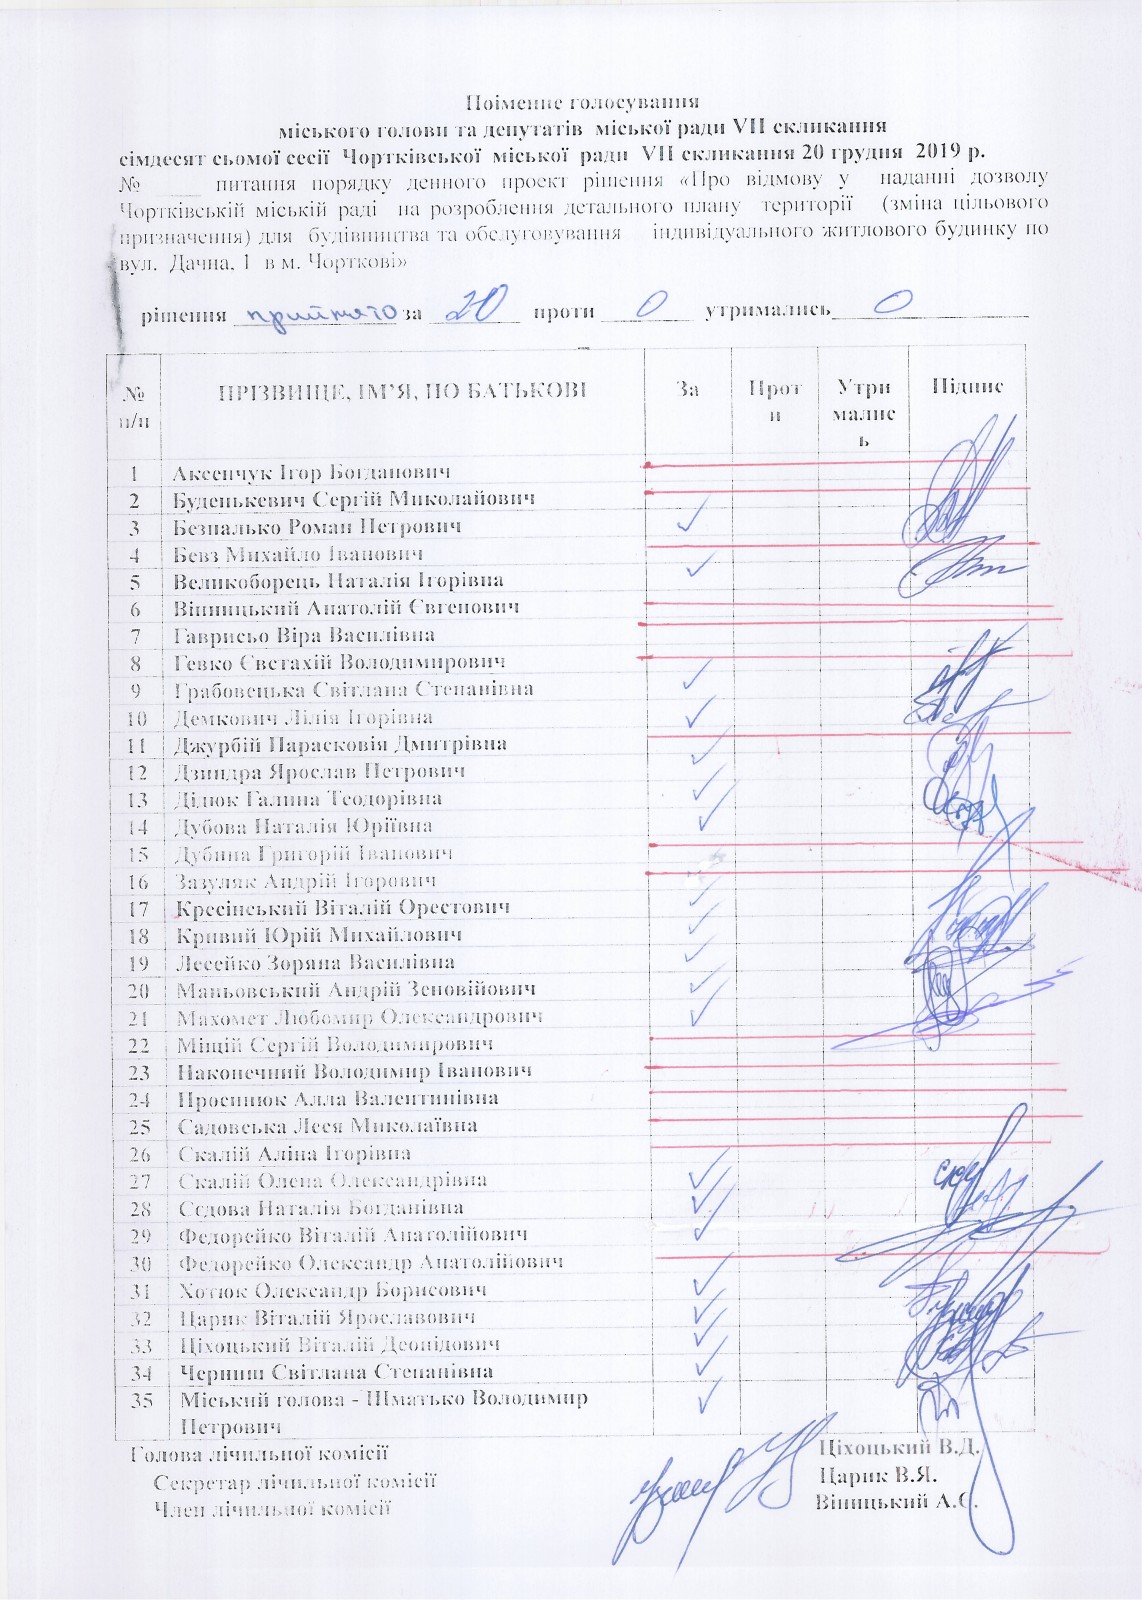 Поіменне голосування
міського голови та депутатів міської ради VII скликання
сімдесят сьомої сесії Чортківської міської ради VII скликання 20 грудня 2019 р.
№ ____ питання порядку денного проект рішення «Про відмову у наданні дозволу
Чортківській міській раді на розроблення детального плану території (зміна цільового
призначення) для будівництва та обслуговування індивідуального житлового будинку по
вул. Дачна, 1 в м. Чорткові»
рішення прийнято за 20 проти 0 утримались 0
№ п/п ПРІЗВИЩЕ, ІМ’Я, ПО БАТЬКОВІ За Проти Утримались Підпис
1 Аксенчук Ігор Богданович
2 Буденькевич Сергій Миколайович
3 Безпалько Роман Петрович ✓
4 Бевз Михайло Іванович
5 Великоборець Наталія Ігорівна ✓
6 Вінницький Анатолій Євгенович
7 Гаврисьо Віра Василівна
8 Гевко Євстахій Володимирович
9 Грабовецька Світлана Степанівна ✓
10 Демкович Лілія Ігорівна ✓
11 Джурбій Парасковія Дмитрівна
12 Дзиндра Ярослав Петрович ✓
13 Дідюк Галина Теодорівна ✓
14 Дубова Наталія Юріївна ✓
15 Дубина Григорій Іванович
16 Зазуляк Андрій Ігорович
17 Кресінський Віталій Орестович ✓
18 Кривий Юрій Михайлович ✓
19 Лесейко Зоряна Василівна ✓
20 Маньовський Андрій Зеновійович ✓
21 Махомет Любомир Олександрович ✓
22 Міщій Сергій Володимирович
23 Наконечний Володимир Іванович
24 Просинюк Алла Валентинівна
25 Садовська Леся Миколаївна
26 Скалій Аліна Ігорівна
27 Скалій Олена Олександрівна ✓
28 Сєдова Наталія Богданівна ✓
29 Федорейко Віталій Анатолійович ✓
30 Федорейко Олександр Анатолійович
31 Хотюк Олександр Борисович ✓
32 Царик Віталій Ярославович ✓
33 Ціхоцький Віталій Деонідович ✓
34 Черниш Світлана Степанівна ✓
35 Міський голова - Шматько Володимир
Петрович ✓
Голова лічильної комісії Ціхоцький В.Д.
Секретар лічильної комісії Царик В.Я.
Член лічильної комісії Віницький А.Є.